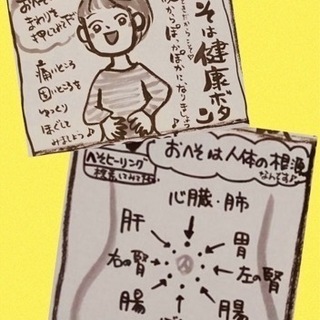 おへその
まわりを
押してみて
痛いところ
固いところを
ゆっくり
ほぐして
みましょう
そは健康ボタン
からぽっかぽかになりましょう
へそヒーリング
検索してみてね
おへそは人体の根源
なんです
心臓・肺
肝
胃
右の腎
左の腎
腸
腸